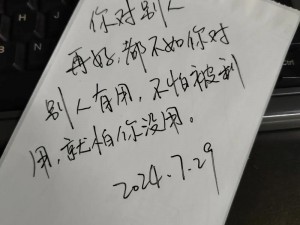 你对别人
再好,都不如你对
别人有用,不怕被利
用,就怕你没用。
2024.7.29